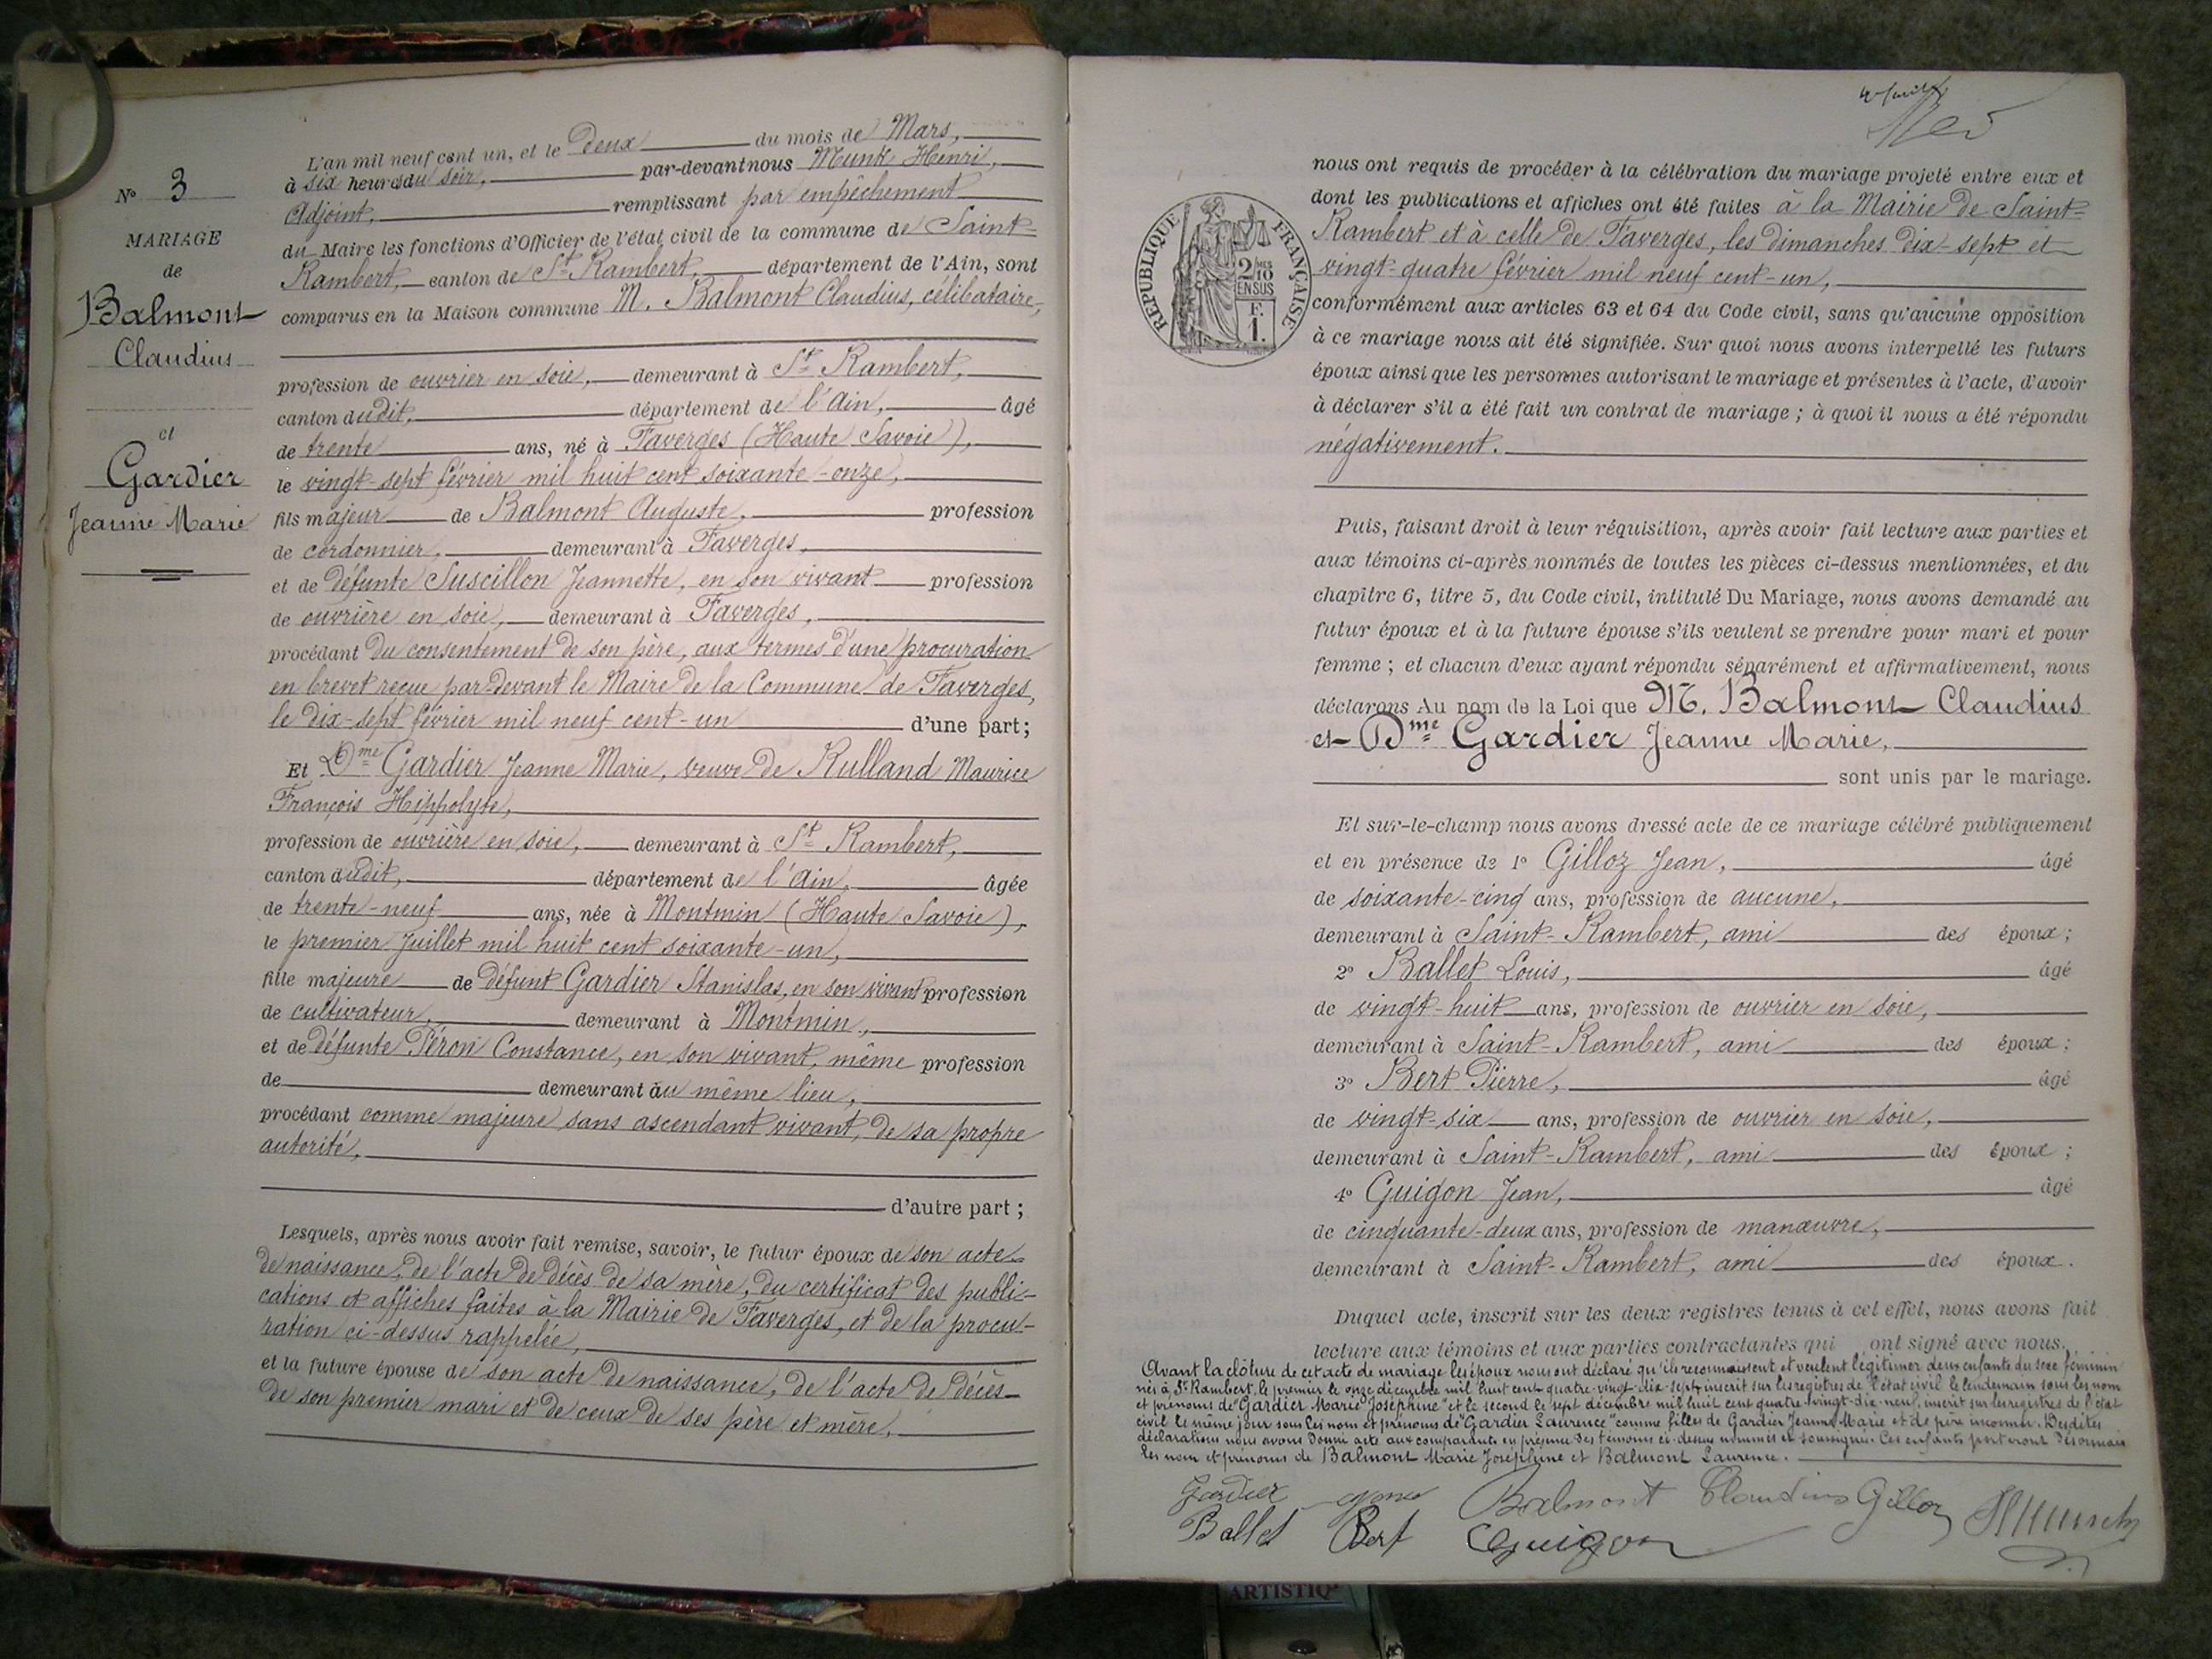 N° 3
MARIAGE
de
Balmont
Claudius
et
Gardier
Jeanne Marie
L'an mil neuf cent un, et le Deux du mois de Mars,
à six heures du soir, par-devant nous Munk Henri,
Adjoint, remplissant par empêchement
du Maire les fonctions d'Officier de l'état civil de la commune de Saint-
Rambert, canton de St Rambert, département de l'Ain, sont
comparus en la Maison commune M. Balmont Claudius, célibataire,
profession de ouvrier en soie, demeurant à St Rambert,
canton dudit, département de l'Ain, âgé
de trente ans, né à Faverges (Haute Savoie),
le vingt-sept février mil huit cent soixante-onze,
fils majeur de Balmont Auguste, profession
de cordonnier, demeurant à Faverges,
et de défunte Suscillon Jeannette, en son vivant profession
de ouvrière en soie, demeurant à Faverges,
procédant du consentement de son père, aux termes d'une procuration
en brevet reçue par-devant le Maire de la Commune de Faverges,
le dix-sept février mil neuf cent-un d'une part;
Et Dme Gardier Jeanne Marie, veuve de Rulland Maurice
François Hippolyte,
profession de ouvrière en soie, demeurant à St Rambert,
canton dudit, département de l'Ain, âgée
de trente-neuf ans, née à Montmin (Haute Savoie),
le premier Juillet mil huit cent soixante-un,
fille majeure de défunt Gardier Stanislas, en son vivant profession
de cultivateur, demeurant à Montmin,
et de défunte Péron Constance, en son vivant, même profession
de demeurant au même lieu,
procédant comme majeure sans ascendant vivant, de sa propre
autorité,
d'autre part;
Lesquels, après nous avoir fait remise, savoir, le futur époux de son acte
de naissance, de l'acte de décès de sa mère, du certificat des publi-
cations et affiches faites à la Mairie de Faverges, et de la procu-
ration ci-dessus rappelée,
et la future épouse de son acte de naissance, de l'acte de décès
de son premier mari et de ceux de ses père et mère,
RÉPUBLIQUE FRANÇAISE
2/10 MES
EN SUS
F.
1.
nous ont requis de procéder à la célébration du mariage projeté entre eux et
dont les publications et affiches ont été faites à la Mairie de Saint-
Rambert et à celle de Faverges, les dimanches dix-sept et
vingt-quatre février mil neuf cent-un,
conformément aux articles 63 et 64 du Code civil, sans qu'aucune opposition
à ce mariage nous ait été signifiée. Sur quoi nous avons interpellé les futurs
époux ainsi que les personnes autorisant le mariage et présentes à l'acte, d'avoir
à déclarer s'il a été fait un contrat de mariage; à quoi il nous a été répondu
négativement.
Puis, faisant droit à leur réquisition, après avoir fait lecture aux parties et
aux témoins ci-après nommés de toutes les pièces ci-dessus mentionnées, et du
chapitre 6, titre 5, du Code civil, intitulé Du Mariage, nous avons demandé au
futur époux et à la future épouse s'ils veulent se prendre pour mari et pour
femme; et chacun d'eux ayant répondu séparément et affirmativement, nous
déclarons Au nom de la Loi que M. Balmont Claudius
et Dme Gardier Jeanne Marie,
sont unis par le mariage.
Et sur-le-champ nous avons dressé acte de ce mariage célébré publiquement
et en présence de 1° Gilloz Jean, âgé
de soixante-cinq ans, profession de aucune,
demeurant à Saint-Rambert, ami des époux;
2° Ballet Louis, âgé
de vingt-huit ans, profession de ouvrier en soie,
demeurant à Saint-Rambert, ami des époux;
3° Bert Pierre, âgé
de vingt-six ans, profession de ouvrier en soie,
demeurant à Saint-Rambert, ami des époux;
4° Guigon Jean, âgé
de cinquante-deux ans, profession de manœuvre,
demeurant à Saint-Rambert, ami des époux.
Duquel acte, inscrit sur les deux registres tenus à cet effet, nous avons fait
lecture aux témoins et aux parties contractantes qui ont signé avec nous.
Avant la clôture de cet acte de mariage les époux nous ont déclaré qu'ils reconnaissent et veulent légitimer deux enfants du sexe féminin
nés à St Rambert, le premier le onze décembre mil huit cent quatre-vingt-dix-sept, inscrit sur les registres de l'état civil le lendemain sous les nom
et prénoms de "Gardier Marie Joséphine" et le second le sept décembre mil huit cent quatre-vingt-dix-neuf, inscrit sur les registres de l'état
civil le même jour sous les nom et prénoms de "Gardier Laurence" comme filles de Gardier Jeanne Marie et de père inconnu. Desdites
déclarations nous avons donné acte aux comparants en présence des témoins ci-dessus nommés et soussignés. Ces enfants porteront désormais
les nom et prénoms de Balmont Marie Joséphine et Balmont Laurence.
Gardier Balmont Claudius Gilloz
Ballet Bert Guigon
ARTISTIQ